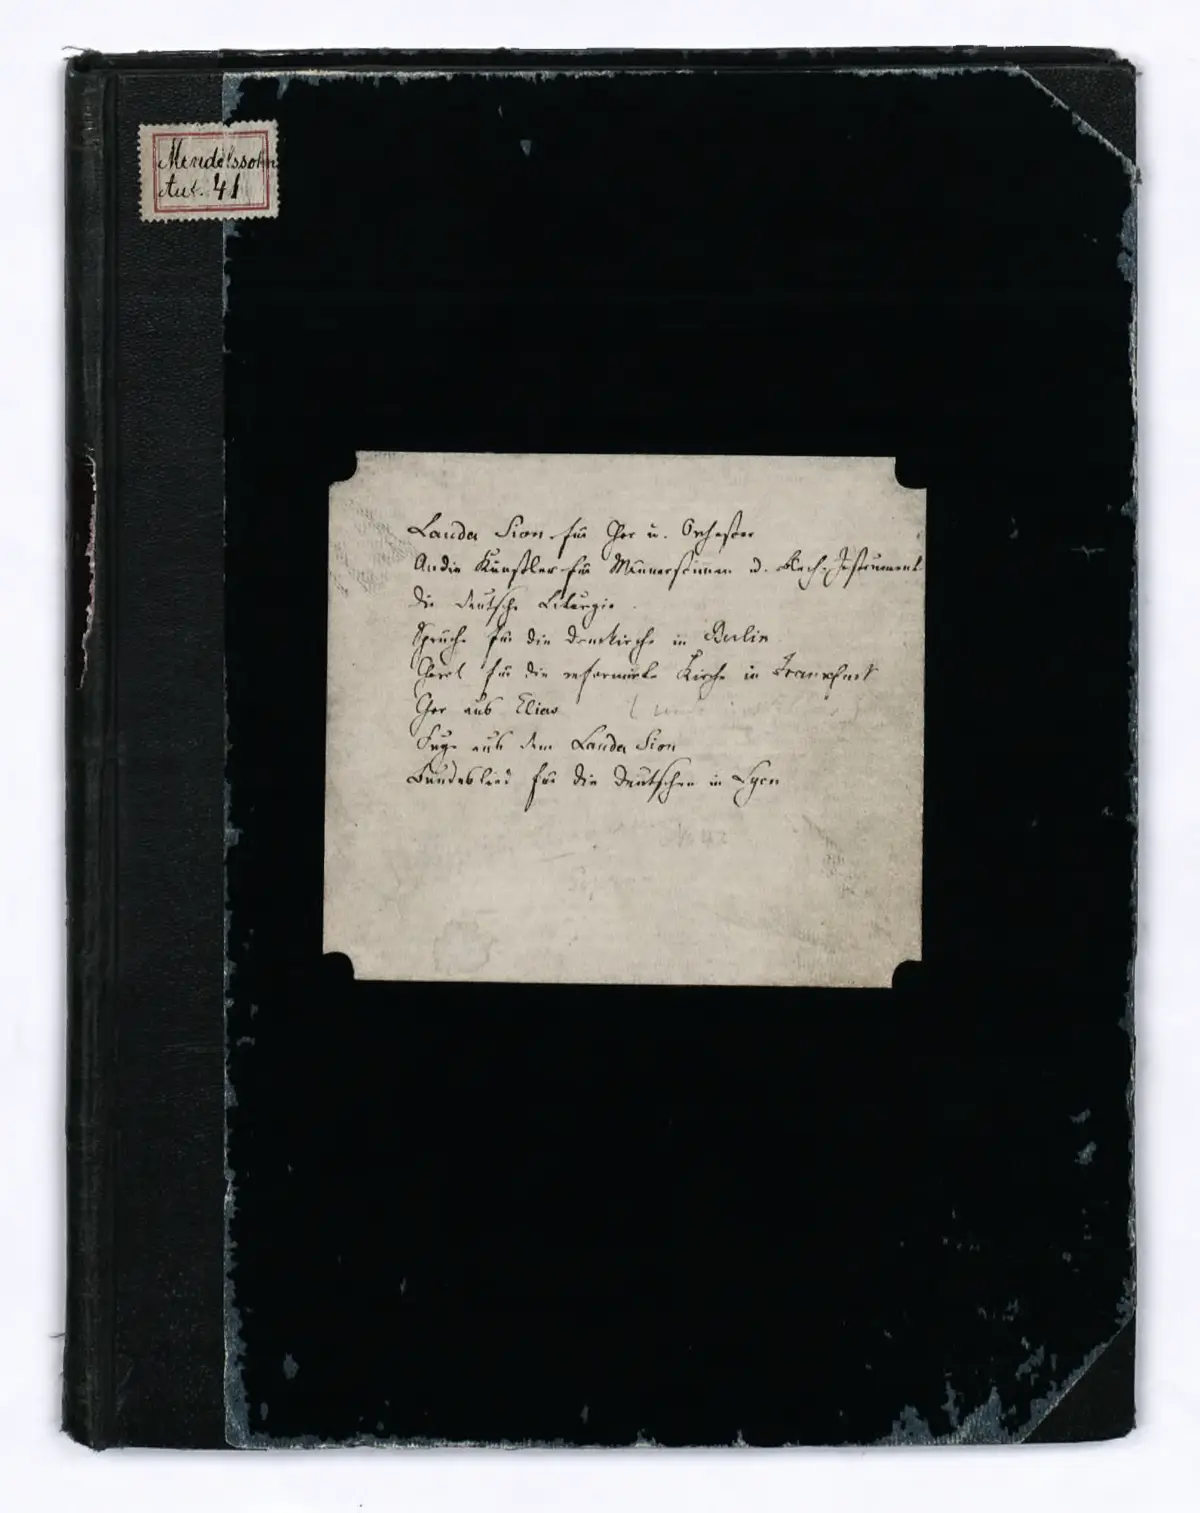 Mendelssohn
Aut. 41
Lauda Sion für Chor u. Orchester
An die Künstler für Männerstimmen u. Blech-Instrument
die deutsche Liturgie.
Sprüche für die Domkirche in Berlin
Choral für die reformirte Kirche in Frankfurt
Chor aus Elias
Fuge aus dem Lauda Sion
Bundeslied für die Deutschen in Lyon